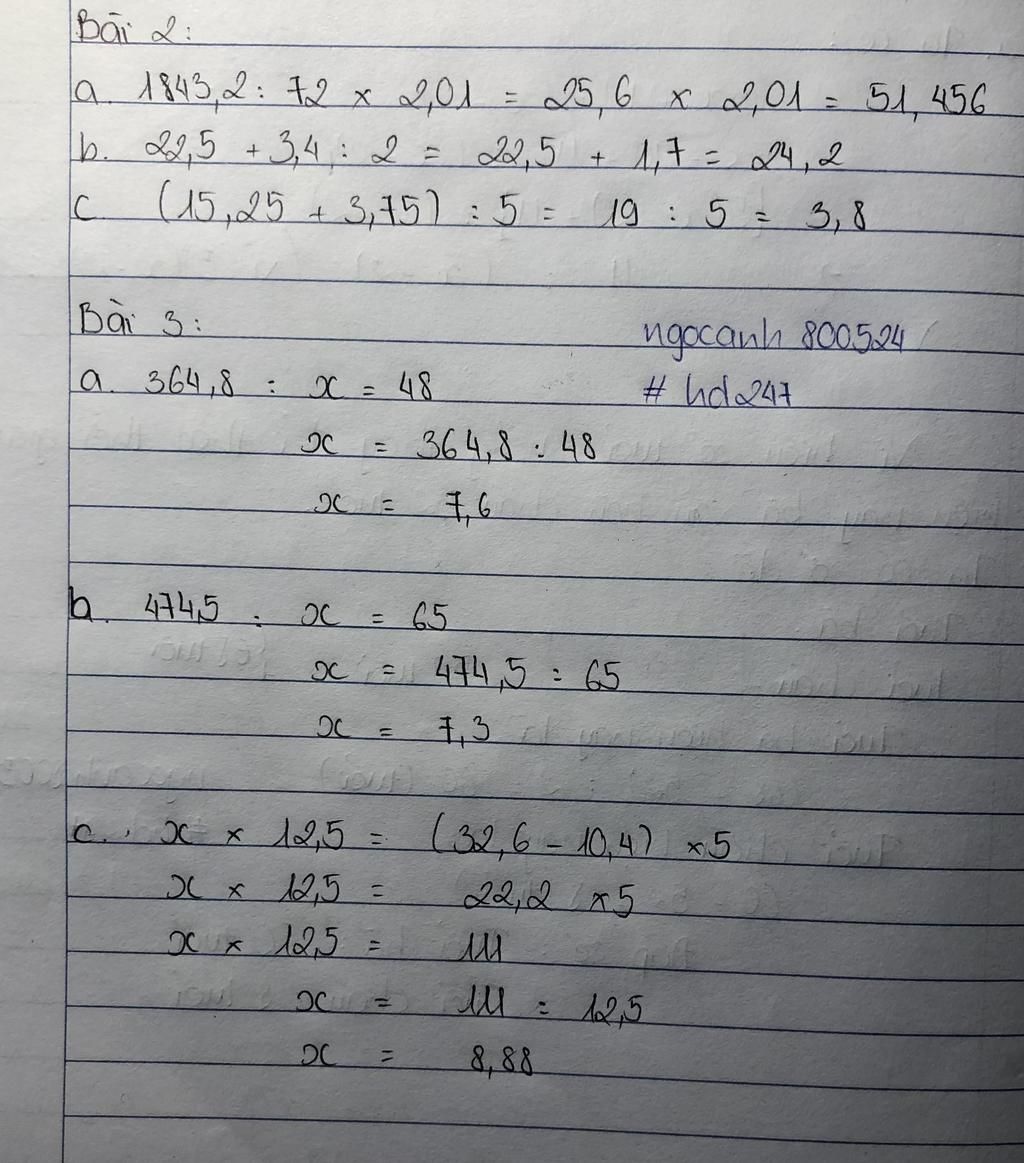 Bài 2:
a. 1843,2 : 72 x 2,01 = 25,6 x 2,01 = 51,456
b. 22,5 + 3,4 : 2 = 22,5 + 1,7 = 24,2
c (15,25 + 3,75) : 5 = 19 : 5 = 3,8
Bài 3:
ngocanh 800524
# hd247
a. 364,8 : x = 48
x = 364,8 : 48
x = 7,6
b. 474,5 : x = 65
x = 474,5 : 65
x = 7,3
c. x x 12,5 = (32,6 - 10,4) x 5
x x 12,5 = 22,2 x 5
x x 12,5 = 111
x = 111 : 12,5
x = 8,88